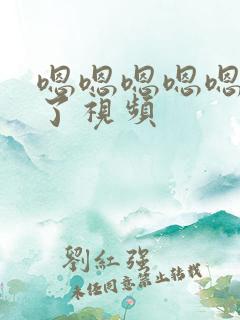 嗯嗯嗯嗯嗯
了視頻
劉紅强
未经同意禁止转载